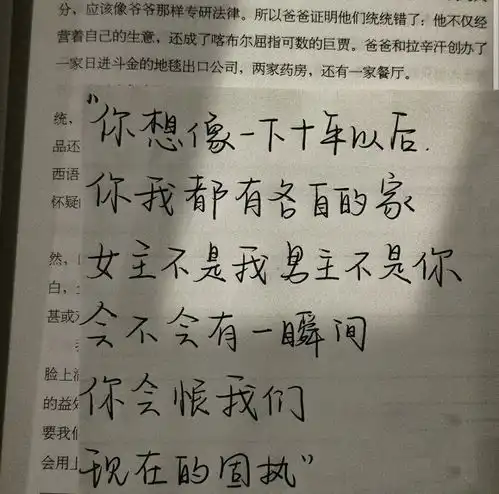 分，应该像爷爷那样专研法律。所以爸爸证明他们统统错了；他不仅经
营着自己的生意，还成了喀布尔屈指可数的巨贾。爸爸和拉辛汗创办了
一家日进斗金的地毯出口公司，两家药房，还有一家餐厅。
统、
品还
西语
怀疑
然，
白，
甚或
脸上
的益
要我们
会用上
"你想像一下十年以后.
你我都有各自的家
女主不是我男主不是你
会不会有一瞬间
你会恨我们
现在的固执"